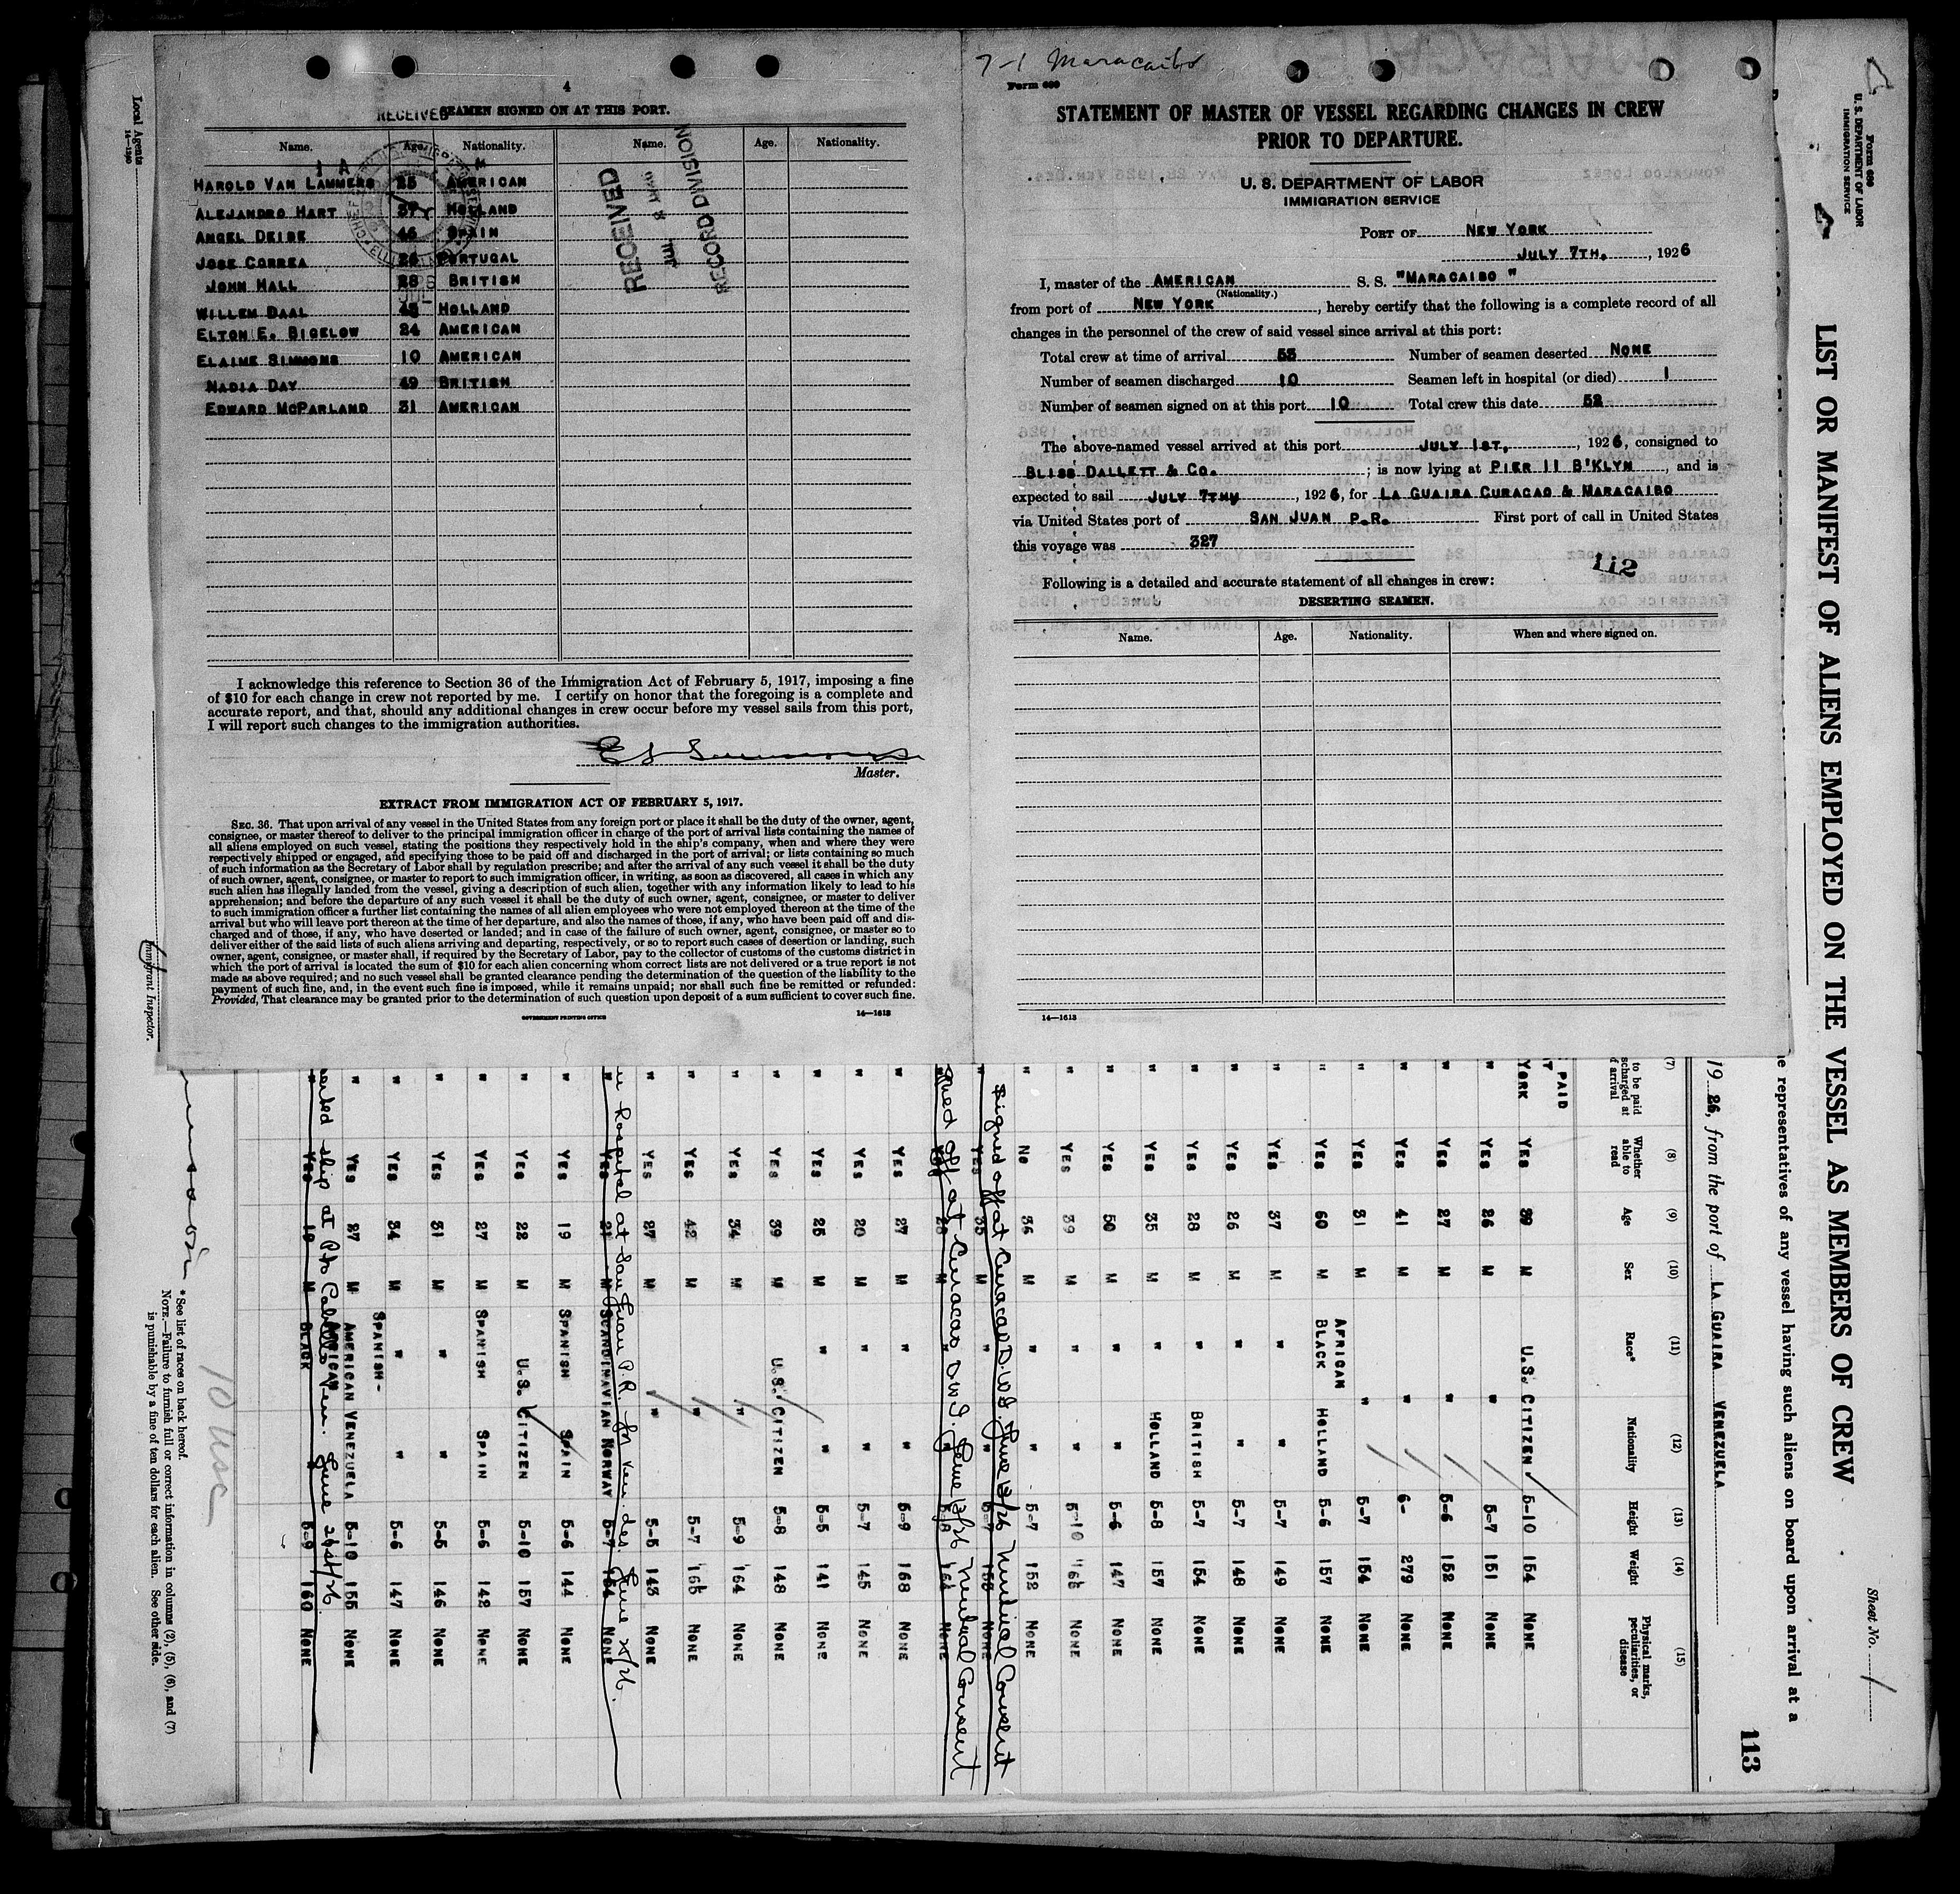 4
RECEIVED
SEAMEN SIGNED ON AT THIS PORT.
Name. Age. Nationality. Name. Age. Nationality.
HAROLD VAN LAMMERS 25 AMERICAN
ALEJANDRO HART 37 HOLLAND
ANGEL DEIBE 46 SPAIN
JOSE CORREA PORTUGAL
JOHN HALL 28 BRITISH
WILLEM DAAL HOLLAND
ELTON E. BIGELOW 24 AMERICAN
ELAIME SIMMONS 10 AMERICAN
NADIA DAY 49 BRITISH
EDWARD MCPARLAND 31 AMERICAN
RECEIVED
JUL 8 1926
RECORD DIVISION
I acknowledge this reference to Section 36 of the Immigration Act of February 5, 1917, imposing a fine
of $10 for each change in crew not reported by me. I certify on honor that the foregoing is a complete and
accurate report, and that, should any additional changes in crew occur before my vessel sails from this port,
I will report such changes to the immigration authorities.
Master.
EXTRACT FROM IMMIGRATION ACT OF FEBRUARY 5, 1917.
SEC. 36. That upon arrival of any vessel in the United States from any foreign port or place it shall be the duty of the owner, agent,
consignee, or master thereof to deliver to the principal immigration officer in charge of the port of arrival lists containing the names of
all aliens employed on such vessel, stating the positions they respectively hold in the ship's company, when and where they were
respectively shipped or engaged, and specifying those to be paid off and discharged in the port of arrival; or lists containing so much
of such information as the Secretary of Labor shall by regulation prescribe; and after the arrival of any such vessel it shall be the duty
of such owner, agent, consignee, or master to report to such immigration officer, in writing, as soon as discovered, all cases in which any
such alien has illegally landed from the vessel, giving a description of such alien, together with any information likely to lead to his
apprehension; and before the departure of any such vessel it shall be the duty of such owner, agent, consignee, or master to deliver
to such immigration officer a further list containing the names of all alien employees who were not employed thereon at the time of the
arrival but who will leave port thereon at the time of her departure, and also the names of those, if any, who have been paid off and dis-
charged and of those, if any, who have deserted or landed; and in case of the failure of such owner, agent, consignee, or master so to
deliver either of the said lists of such aliens arriving and departing, respectively, or so to report such cases of desertion or landing, such
owner, agent, consignee, or master shall, if required by the Secretary of Labor, pay to the collector of customs of the customs district in
which the port of arrival is located the sum of $10 for each alien concerning whom correct lists are not delivered or a true report is not
made as above required; and no such vessel shall be granted clearance pending the determination of the question of the liability to the
payment of such fine, and, in the event such fine is imposed, while it remains unpaid; nor shall such fine be remitted or refunded:
Provided, That clearance may be granted prior to the determination of such question upon deposit of a sum sufficient to cover such fine.
GOVERNMENT PRINTING OFFICE
14—1613
7-1 Maracaibo
Form 689
STATEMENT OF MASTER OF VESSEL REGARDING CHANGES IN CREW
PRIOR TO DEPARTURE.
U. S. DEPARTMENT OF LABOR
IMMIGRATION SERVICE
PORT OF NEW YORK
JULY 7TH. , 1926
I, master of the AMERICAN S. S. "MARACAIBO "
(Nationality.)
from port of NEW YORK , hereby certify that the following is a complete record of all
changes in the personnel of the crew of said vessel since arrival at this port:
Total crew at time of arrival 53 Number of seamen deserted NONE
Number of seamen discharged 10 Seamen left in hospital (or died) 1
Number of seamen signed on at this port 10 Total crew this date 52
The above-named vessel arrived at this port JULY 1ST. , 1926, consigned to
BLISS DALLETT & CO. ; is now lying at PIER 11 B'KLYN , and is
expected to sail JULY 7TH , 1926, for LA GUAIRA CURACAO & MARACAIBO
via United States port of SAN JUAN P.R. First port of call in United States
this voyage was 327
112
Following is a detailed and accurate statement of all changes in crew:
DESERTING SEAMEN.
Name. Age. Nationality. When and where signed on.
14—1613
Form 689
U. S. DEPARTMENT OF LABOR
IMMIGRATION SERVICE
Sheet No. 1
LIST OR MANIFEST OF ALIENS EMPLOYED ON THE VESSEL AS MEMBERS OF CREW
representatives of any vessel having such aliens on board upon arrival at a
113
1926, from the port of LA GUAIRA VENEZUELA
(7) (8) (9) (10) (11) (12) (13) (14) (15)
to be paid discharged at of arrival Whether able to read Age Sex Race* Nationality Height Weight Physical marks, peculiarities, or disease
PAID
YORK YES 39 M U.S. CITIZEN 5-10 154 NONE
" YES 26 M " 5-7 151 NONE
" YES 27 M " 5-6 152 NONE
" YES 41 M " 6- 279 NONE
" YES 31 M " 5-7 154 NONE
" YES 60 M AFRICAN BLACK HOLLAND 5-6 157 NONE
" YES 37 M " " 5-7 149 NONE
" YES 26 M " " 5-7 148 NONE
" YES 28 M " BRITISH 5-7 154 NONE
" YES 35 M " HOLLAND 5-8 157 NONE
" YES 50 M " " 5-6 147 NONE
" YES 39 M " " 5-10 165 NONE
" NO 36 M " " 5-7 152 NONE
Signed off at Curacao D.W.I. June 13/26 Mutual Consent
" YES 35 M " " 5-7 153 NONE
Signed off at Curacao D.W.I. June 13/26 Mutual Consent
" YES 28 M " " 5-8 164 NONE
" YES 27 M " " 5-9 168 NONE
" YES 20 M " " 5-7 145 NONE
" YES 25 M " " 5-5 141 NONE
" YES 39 M U.S. CITIZEN 5-8 148 NONE
" YES 34 M " 5-9 164 NONE
" YES 42 M " 5-7 165 NONE
" YES 27 M " 5-5 143 NONE
in hospital at San Juan P.R. for ven. des. June 25/26.
" YES 21 M SCANDINAVIAN NORWAY 5-7 164 NONE
" YES 19 M SPANISH SPAIN 5-6 144 NONE
" YES 22 M U.S. CITIZEN 5-10 157 NONE
" YES 27 M SPANISH SPAIN 5-6 142 NONE
" YES 31 M " " 5-5 146 NONE
" YES 34 M " " 5-6 147 NONE
" YES 27 M SPANISH-AMERICAN VENEZUELA 5-10 155 NONE
ship at Pto Cabello Ven. June 21st/26.
" YES 19 M AFRICAN BLACK " 5-9 160 NONE
10 USC
* See list of races on back hereof.
NOTE.—Failure to furnish full or correct information in columns (2), (5), (6), and (7)
is punishable by a fine of ten dollars for each alien. See other side.
Immigrant Inspector.
Local Agents
14—1240